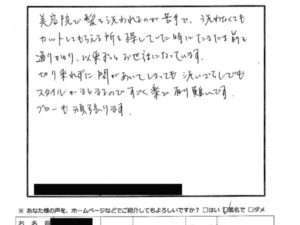 美容院で髪を洗われるのが苦手で、洗わなくても
カットしてもらえる所を探していた時に、たまたま前を
通りかかり、以来ずっとお世話になっています。
切り来れずに間があいてしまっても洗いざらしでも
スタイルがまとまるのですごく楽で有り難いです。
ブローも頑張ります。
※ あなた様の声を、ホームページなどでご紹介してもよろしいですか？ □はい ☑匿名で □ダメ
お 名 前